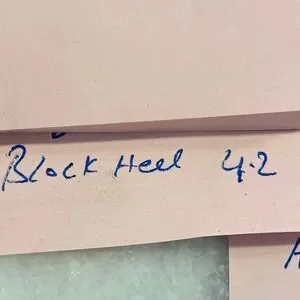 Block Heel 4.2
A